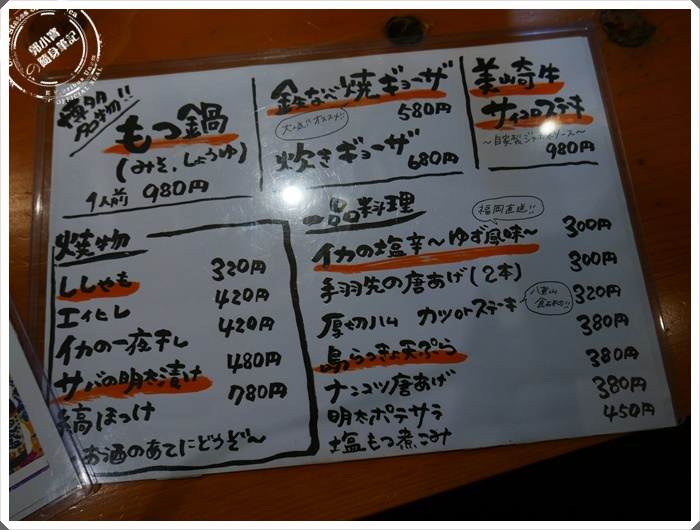 郭小寶
の隨身筆記
OFFICIAL SEAL
博多
名物!!
もつ鍋
(みそ,しょうゆ)
1人前 980円
鉄なべ焼ギョーザ
580円
大人気!!オススメ!!
炊きギョーザ 680円
美崎牛
サイコロステーキ
〜自家製ジャポネソース〜
980円
焼物
ししゃも 320円
エイヒレ 420円
イカの一夜干し 420円
サバの明太漬け 480円
縞ほっけ 780円
お酒のあてにどうぞ〜
一品料理
福岡直送!!
イカの塩辛〜ゆず風味〜 300円
手羽先の唐あげ(2本) 300円
厚切ハム カツorステーキ 320円
八重山
島らっきょ天ぷら 380円
ナンコツ唐あげ 380円
明太ポテサラ 380円
塩もつ煮こみ 450円